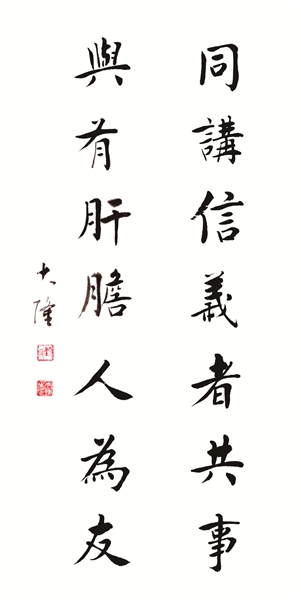 同講信義者共事
與有肝膽人為友
大隆